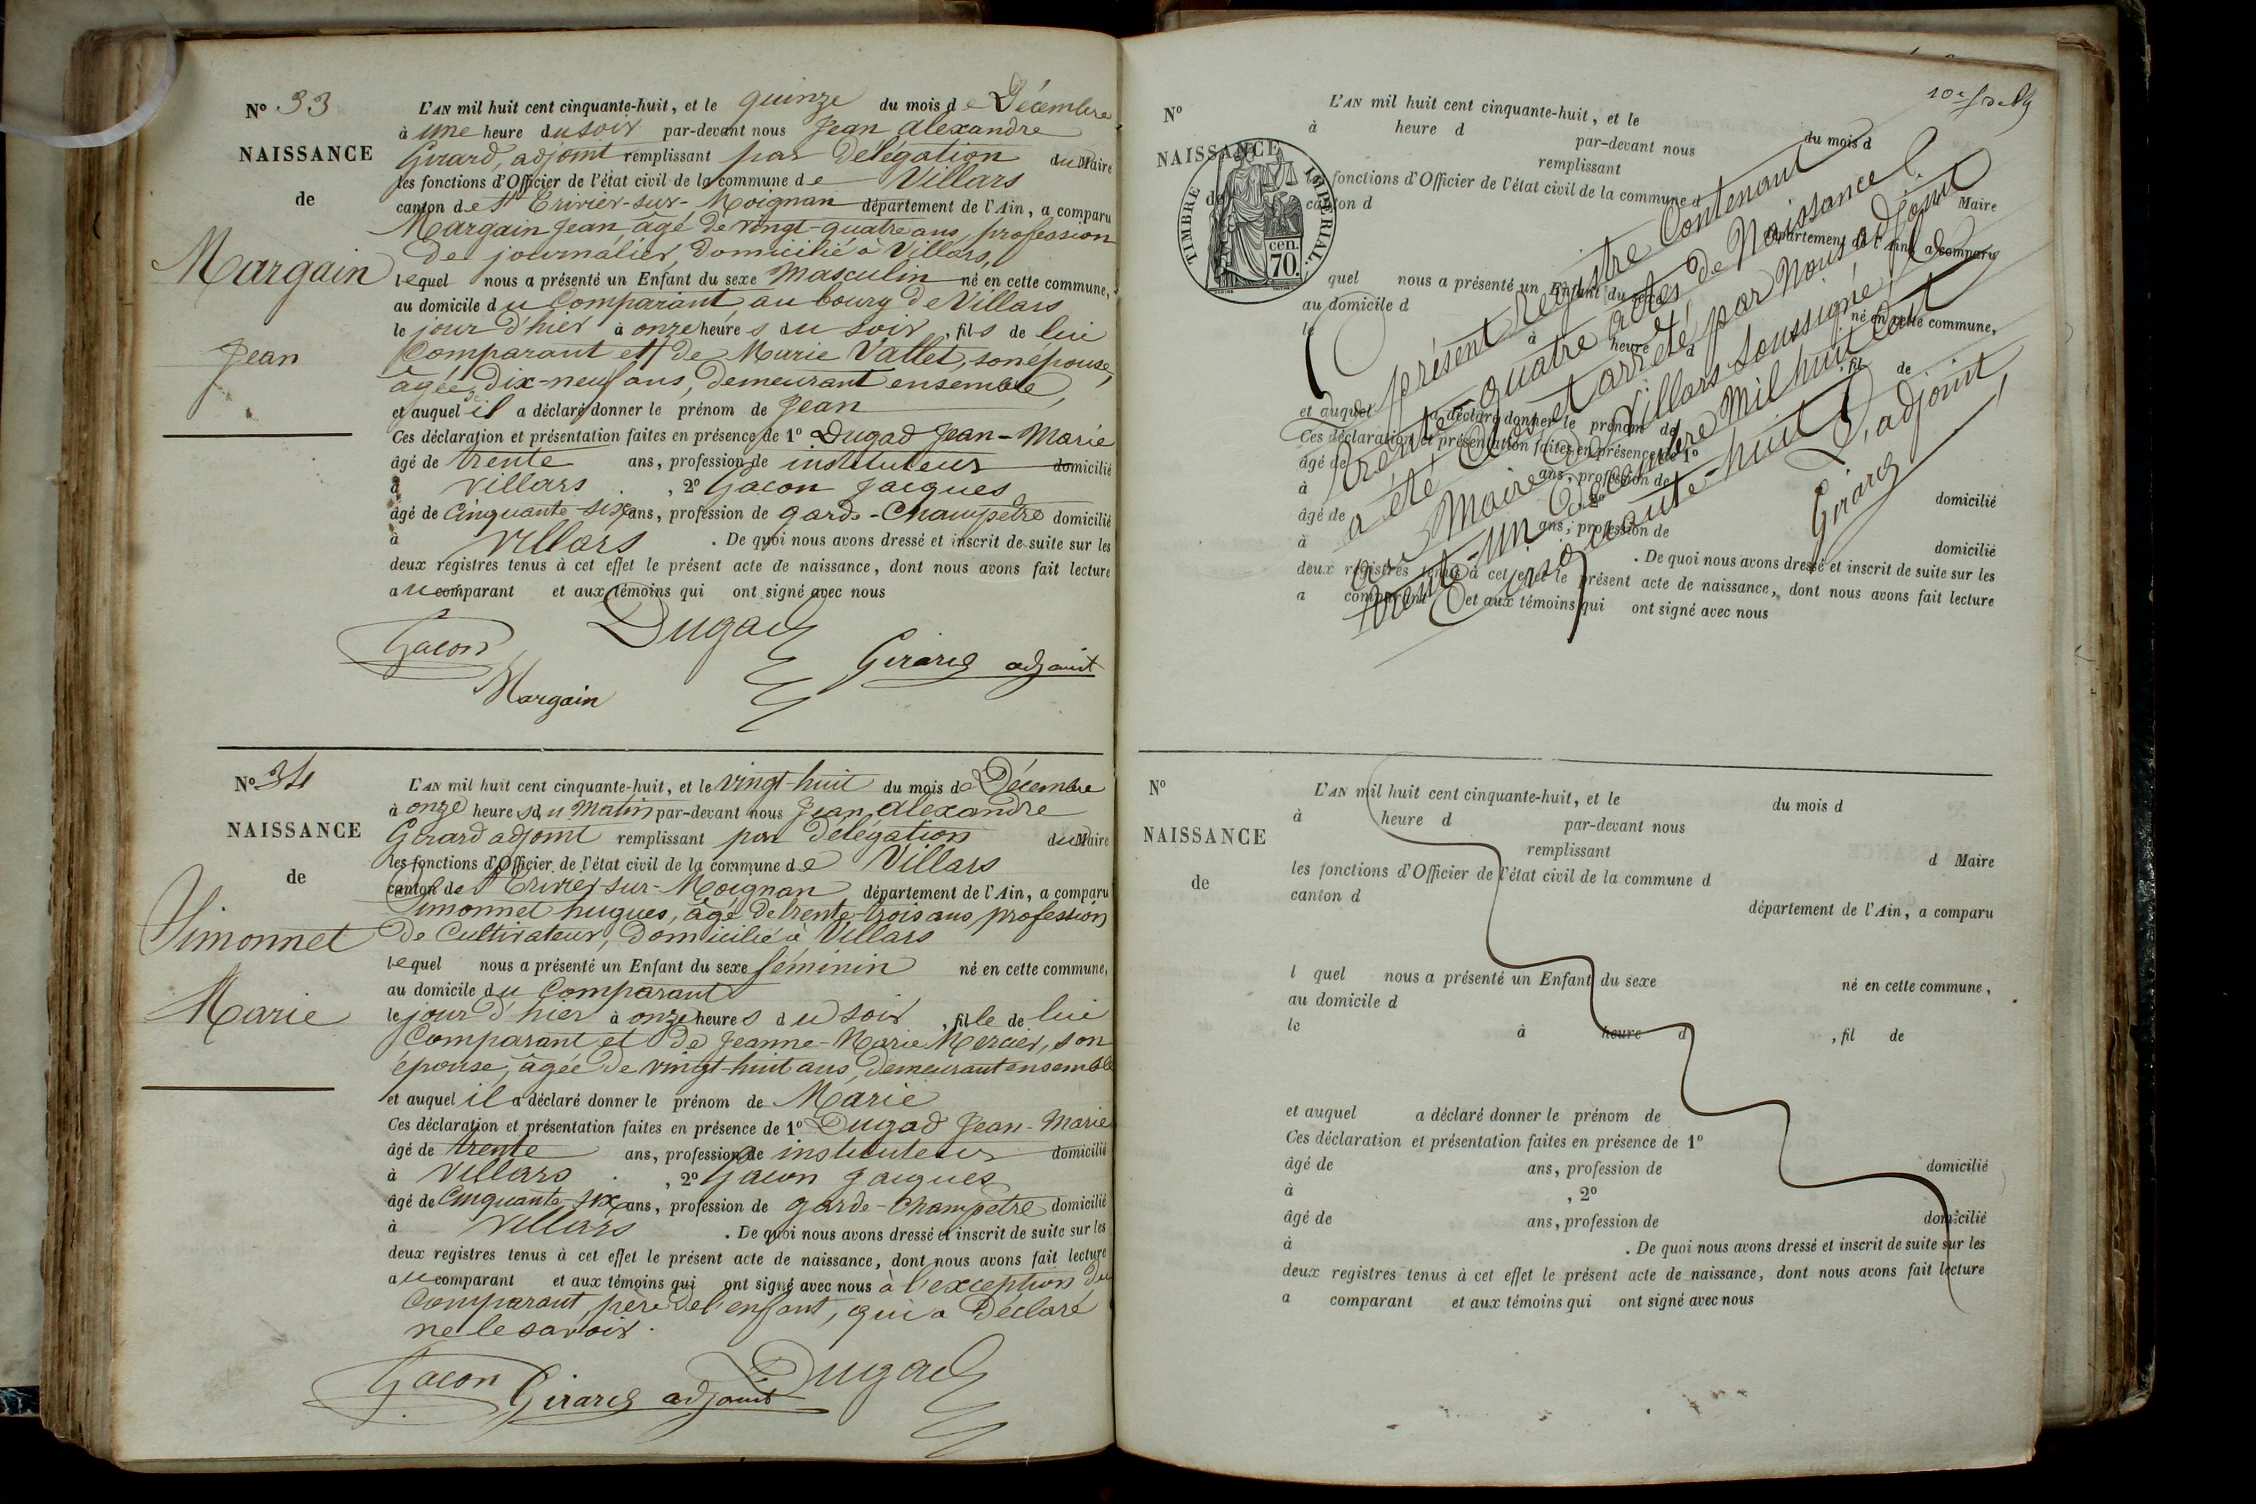 N° 33
NAISSANCE
de
Margain
Jean
L'AN mil huit cent cinquante-huit, et le quinze du mois de Décembre
à une heure du soir par-devant nous Jean Alexandre
Girard, adjoint remplissant par délégation du Maire
les fonctions d'Officier de l'état civil de la commune de Villars
canton de St Trivier-sur-Moignan département de l'Ain, a comparu
Margain Jean âgé de vingt-quatre ans, profession
de journalier, domicilié à Villars,
lequel nous a présenté un Enfant du sexe Masculin né en cette commune,
au domicile du Comparant, au bourg de Villars
le jour d'hier à onze heures du soir, fils de lui
Comparant et de Marie Vallet, son épouse,
âgée de dix-neuf ans, demeurant ensemble,
et auquel il a déclaré donner le prénom de Jean
Ces déclaration et présentation faites en présence de 1° Dugad Jean-Marie
âgé de trente ans, profession de instituteur domicilié
à Villars, 2° Gacon Jacques
âgé de Cinquante-six ans, profession de garde-Champetre domicilié
à Villars. De quoi nous avons dressé et inscrit de suite sur les
deux registres tenus à cet effet le présent acte de naissance, dont nous avons fait lecture
au comparant et aux témoins qui ont signé avec nous
Gacon Dugad
Girard adjoint
Margain
N° 34
NAISSANCE
de
Simonnet
Marie
L'AN mil huit cent cinquante-huit, et le vingt-huit du mois de Décembre
à onze heures du Matin par-devant nous Jean Alexandre
Girard adjoint remplissant par délégation du Maire
les fonctions d'Officier de l'état civil de la commune de Villars
canton de St Trivier-sur-Moignan département de l'Ain, a comparu
Simonnet hugues, âgé de trente-trois ans profession
de Cultivateur, domicilié à Villars
lequel nous a présenté un Enfant du sexe féminin né en cette commune,
au domicile du Comparant
le jour d'hier à onze heures du soir, fille de lui
Comparant et de Jeanne-Marie Mercier, son
épouse, âgée de vingt-huit ans, demeurant ensemble
et auquel il a déclaré donner le prénom de Marie
Ces déclaration et présentation faites en présence de 1° Dugad Jean-Marie
âgé de trente ans, profession de instituteur domicilié
à Villars, 2° Gacon Jacques
âgé de Cinquante-six ans, profession de garde-Champetre domicilié
à Villars. De quoi nous avons dressé et inscrit de suite sur les
deux registres tenus à cet effet le présent acte de naissance, dont nous avons fait lecture
au comparant et aux témoins qui ont signé avec nous à l'exception du
Comparant, père de l'enfant, qui a Déclaré
ne le savoir.
Gacon Girard adjoint Dugad
N°
NAISSANCE
de
TIMBRE IMPERIAL.
70. cen.
L'AN mil huit cent cinquante-huit, et le du mois d
à heure d par-devant nous
remplissant Maire
fonctions d'Officier de l'état civil de la commune d
canton d département de l'Ain, a comparu
quel nous a présenté un Enfant du sexe né en cette commune,
au domicile d
le à heure d fil de
et auquel a déclaré donner le prénom de
Ces déclaration et présentation faites en présence de 1°
âgé de ans, profession de domicilié
à 2°
âgé de ans, profession de domicilié
à . De quoi nous avons dressé et inscrit de suite sur les
deux registres tenus à cet effet le présent acte de naissance, dont nous avons fait lecture
a comparant et aux témoins qui ont signé avec nous
présent Registre Contenant
trente-quatre actes de Naissance
a été Clos et arrêté par Nous adjoint
au Maire de Villars soussigné, le
trente-un Décembre Mil huit cent
Cinquante-huit
L'adjoint
Girard
N°
NAISSANCE
de
L'AN mil huit cent cinquante-huit, et le du mois d
à heure d par-devant nous
remplissant d Maire
les fonctions d'Officier de l'état civil de la commune d
canton d département de l'Ain, a comparu
l quel nous a présenté un Enfant du sexe né en cette commune,
au domicile d
le à heure d , fil de
et auquel a déclaré donner le prénom de
Ces déclaration et présentation faites en présence de 1°
âgé de ans, profession de domicilié
à , 2°
âgé de ans, profession de domicilié
à . De quoi nous avons dressé et inscrit de suite sur les
deux registres tenus à cet effet le présent acte de naissance, dont nous avons fait lecture
a comparant et aux témoins qui ont signé avec nous